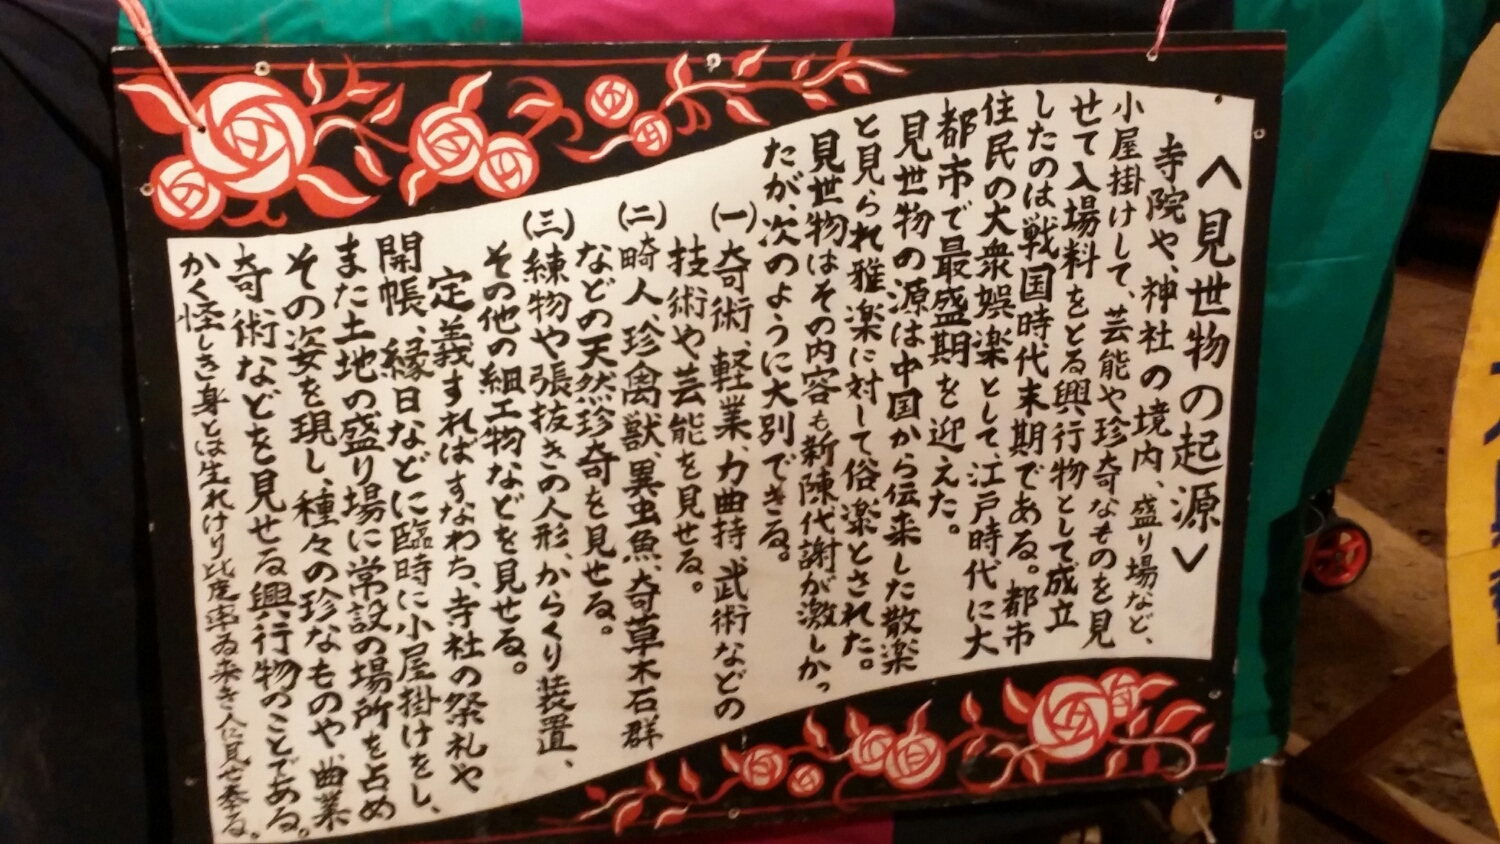 ＜見世物の起源＞
寺院や、神社の境内、盛り場など、
小屋掛けして、芸能や珍奇なものを見
せて入場料をとる興行物として成立
したのは戦国時代末期である。都市
住民の大衆娯楽として、江戸時代に大
都市で最盛期を迎えた。
見世物の源は中国から伝来した散楽
と見られ雅楽に対して、俗楽とされた。
見世物はその内容も新陳代謝が激しかっ
たが、次のように大別できる。
(一)奇術、軽業、力曲持、武術などの
技術や芸能を見せる。
(二)畸人、珍禽獣、異虫魚、奇草木石群
などの天然珍奇を見せる。
(三)練物や張抜きの人形、からくり装置、
その他の組工物などを見せる。
定義すればすなわち、寺社の祭礼や
開帳、縁日などに臨時に小屋掛けをし、
また土地の盛り場に常設の場所を占め
その姿を現し、種々の珍なものや、曲業
奇術などを見せる興行物のことである。
かく怪しき身とは生れけり此度率ゐ来き人に見せ奉る。